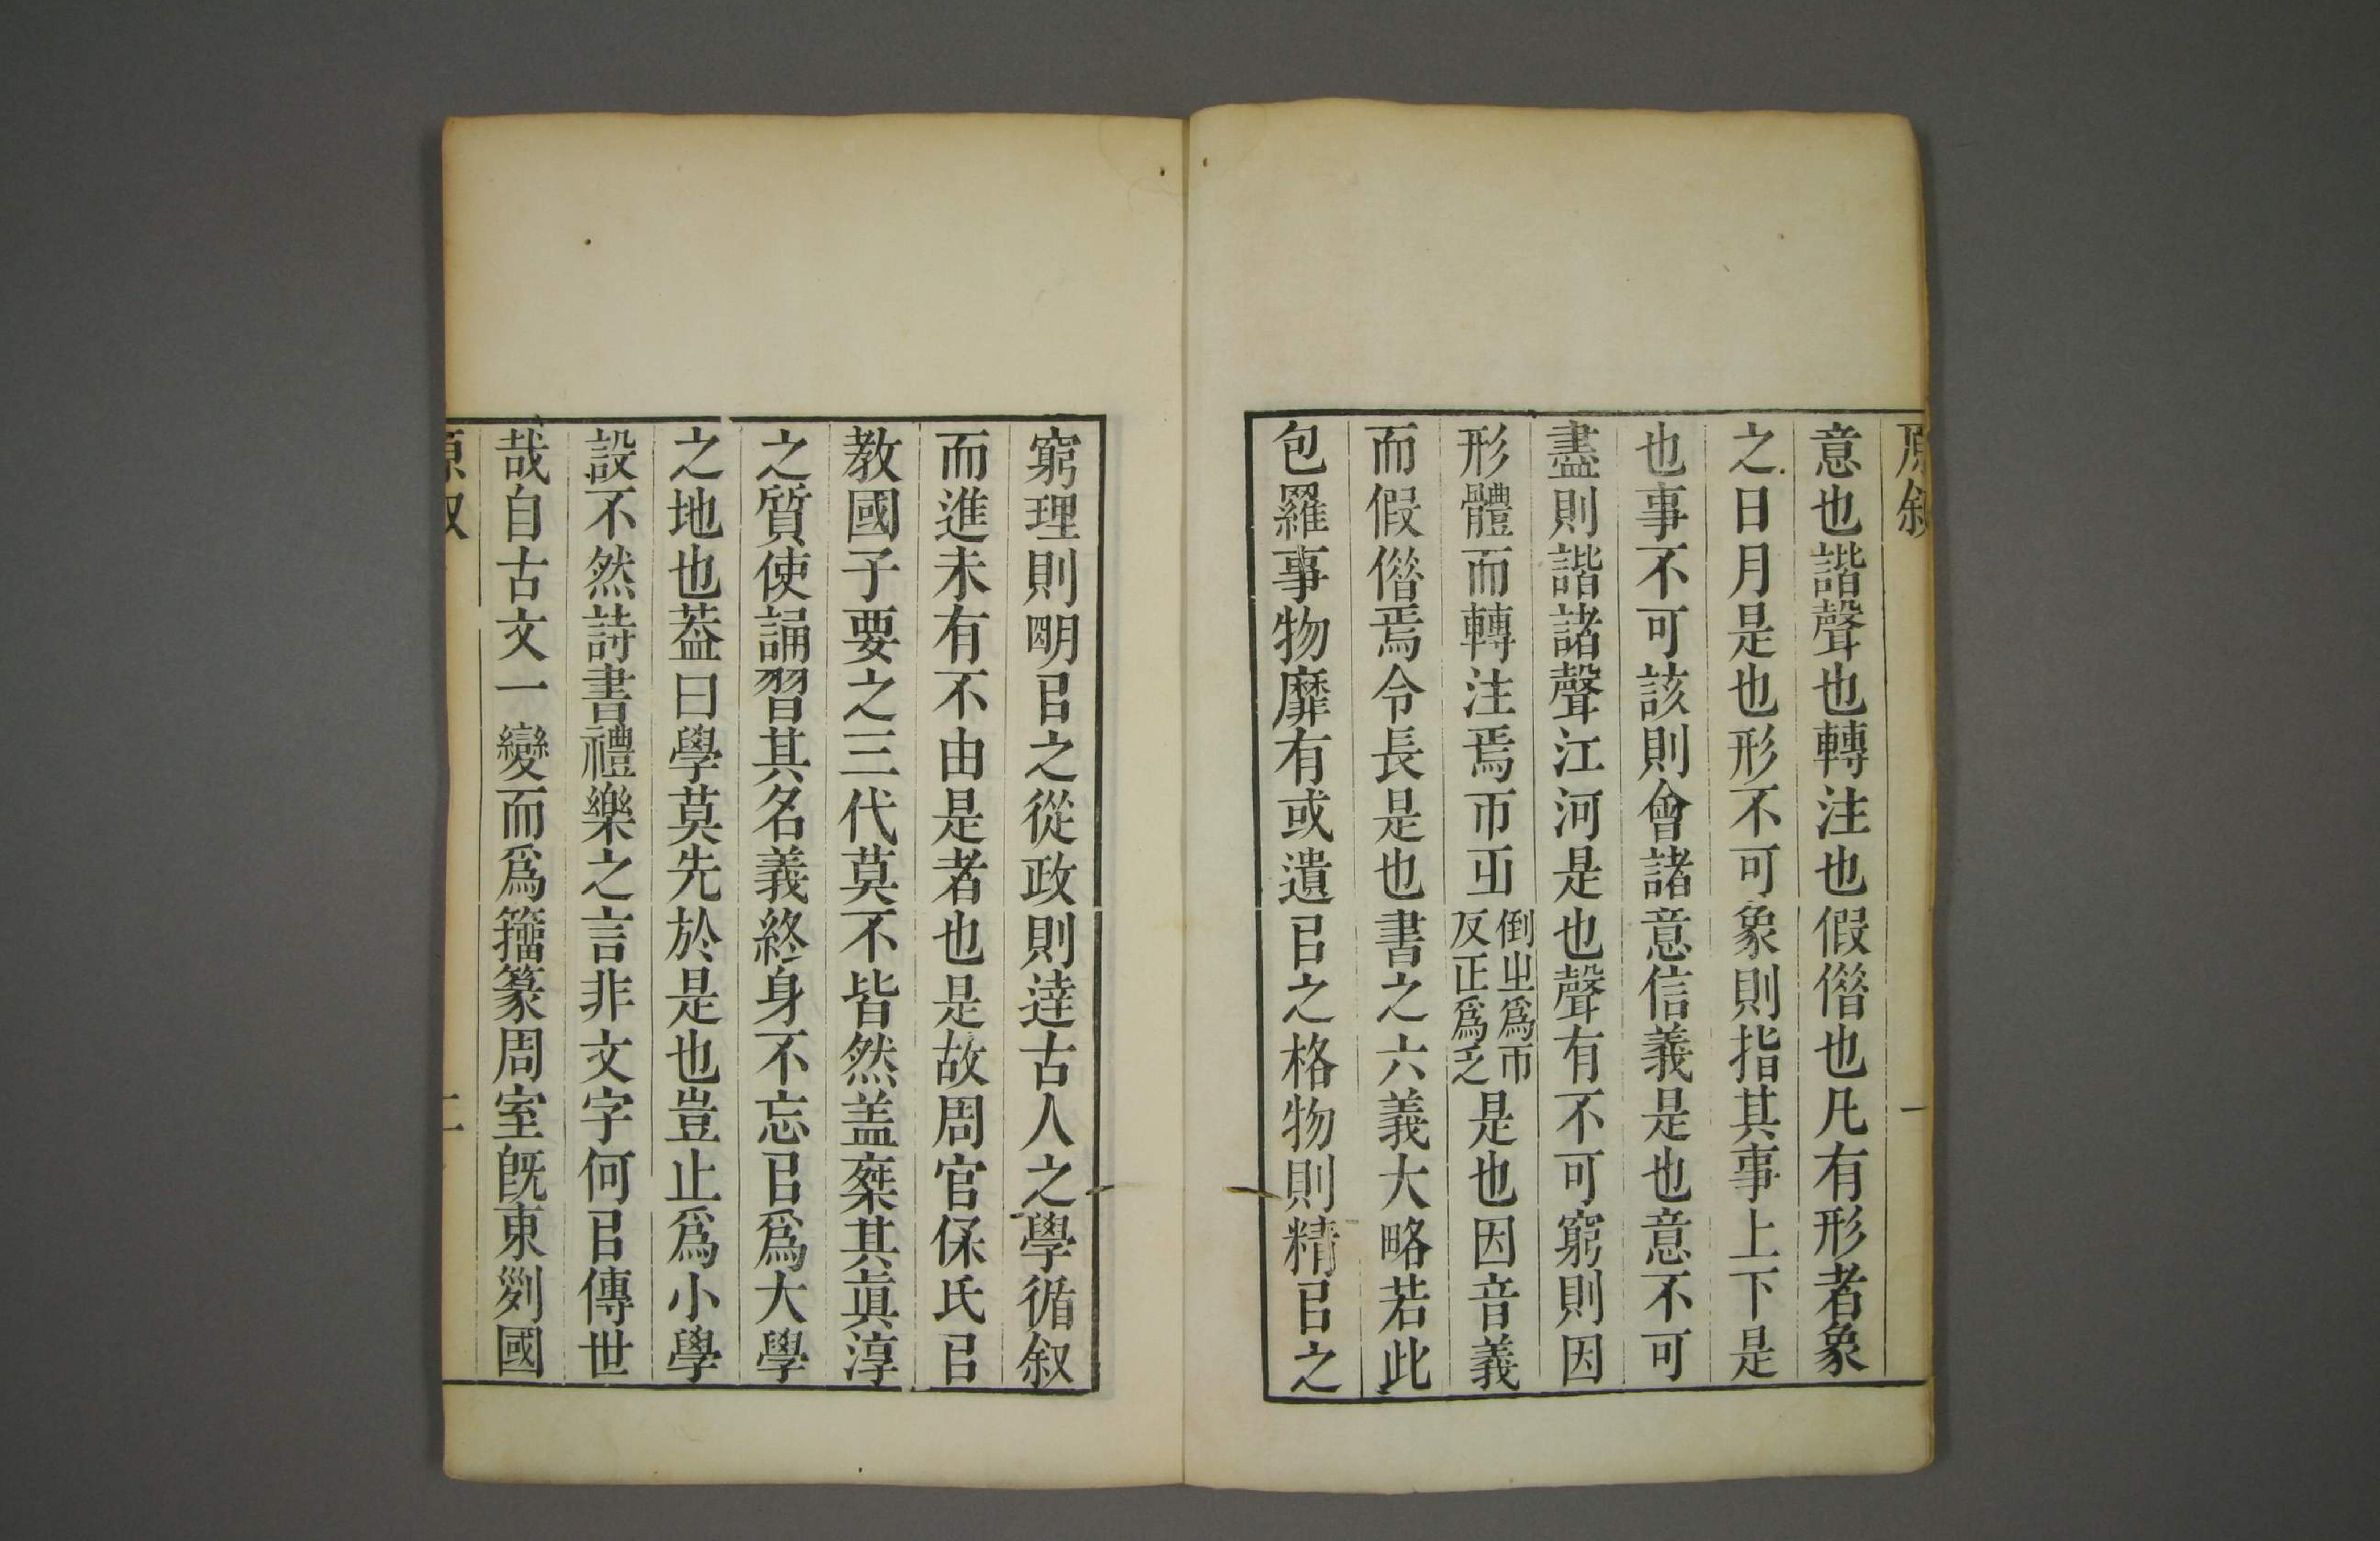 原叙
一
意也諧聲也轉注也假偺也凡有形者象
之日月是也形不可象則指其事上下是
也事不可該則會諸意信義是也意不可
盡則諧諸聲江河是也聲有不可窮則因
形體而轉注焉帀𠚒倒㞢爲帀反正爲乏是也因音義
而假偺焉令長是也書之六義大略若此
包羅事物靡有或遺㠯之格物則精㠯之
窮理則朙㠯之從政則逹古人之學循叙
而進未有不由是者也是故周官保氏㠯
教國子要之三代莫不皆然盖楽其眞淳
之質使誦習其名義終身不忘㠯爲大學
之地也葢曰學莫先於是也豈止爲小學
設不然詩書禮樂之言非文字何㠯傳世
哉自古文一變而爲籒篆周室旣東列國
原叙
二